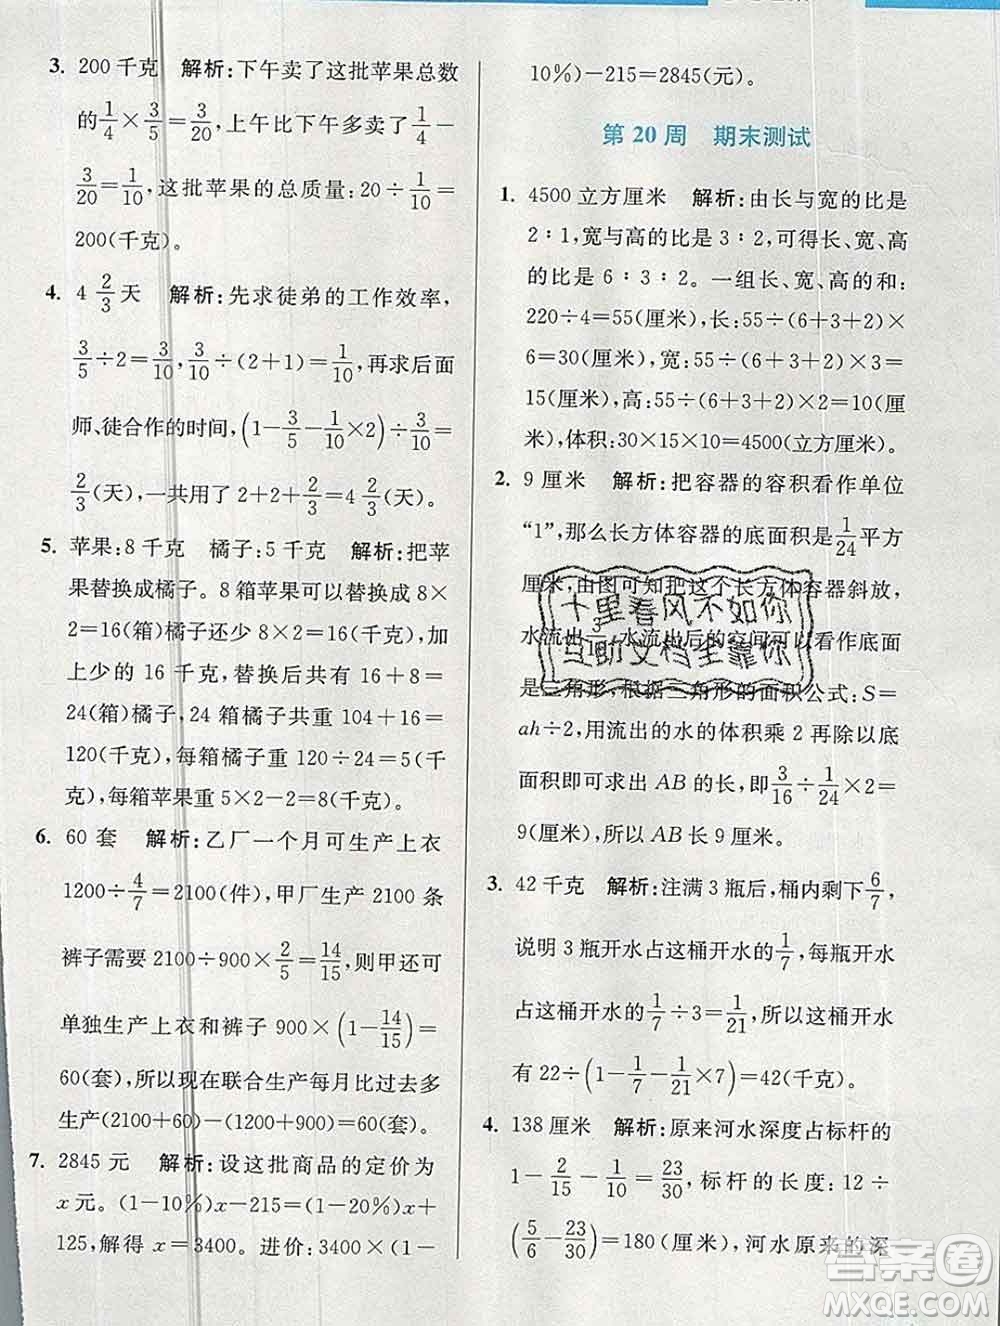 3. 200 千克 解析:下午卖了这批苹果总数
的1/4×3/5=3/20,上午比下午多卖了1/4-
3/20=1/10,这批苹果的总质量:20÷1/10=
200(千克)。
4. 4 2/3天 解析:先求徒弟的工作效率,
3/5÷2=3/10,3/10÷(2+1)=1/10,再求后面
师、徒合作的时间,(1-3/5-1/10×2)÷3/10=
2/3(天),一共用了2+2+2/3=4 2/3(天)。
5. 苹果:8千克 橘子:5千克 解析:把苹
果替换成橘子。8箱苹果可以替换成8×
2=16(箱)橘子还少8×2=16(千克),
加上少的16千克,替换后共有16+8=
24(箱)橘子,24箱橘子共重104+16=
120(千克),每箱橘子重120÷24=5(千
克),每箱苹果重5×2-2=8(千克)。
6. 60套 解析:乙厂一个月可生产上衣
1200÷4/7=2100(件),甲厂生产2100条
裤子需要2100÷900×2/5=14/15,则甲还可
单独生产上衣和裤子900×(1-14/15)=
60(套),所以现在联合生产每月比过去多
生产(2100+60)-(1200+900)=60(套)。
7. 2845元 解析:设这批商品的定价为
x元。(1-10%)x-215=(1-20%)x+
125,解得x=3400。进价:3400×(1-
10%)-215=2845(元)。
第20周 期末测试
1. 4500立方厘米 解析:由长与宽的比是
2∶1,宽与高的比是3∶2,可得长、宽、高
的比是6∶3∶2。一组长、宽、高的和是:
220÷4=55(厘米),长:55÷(6+3+2)×
6=30(厘米),宽:55÷(6+3+2)×3=
15(厘米),高:55÷(6+3+2)×2=10(厘
米),体积:30×15×10=4500(立方厘米)。
2. 9厘米 解析:把容器的容积看作单位
“1”,那么长方体容器的底面积是1/24平方
厘米,由图可知把这个长方体容器斜放,
水流出3/16,水流出后的空间可以看作底面
是三角形,根据三角形的面积公式:S=
ah÷2,用流出的水的体积乘2再除以底
面积即可求出AB的长,即3/16÷1/24×2=
9(厘米),所以AB长9厘米。
3. 42千克 解析:注满3瓶后,桶内剩下6/7,
说明3瓶开水占这桶开水的1/7,每瓶开水
占这桶开水的1/7÷3=1/21,所以这桶开水
有22÷(1-1/7-1/21×7)=42(千克)。
4. 138厘米 解析:原来河水深度占标杆的
1-2/15-1/10=23/30,标杆的长度:12÷
(5/6-23/30)=180(厘米),河水原来的深
十里春风不如你
互助文档全靠你
答案圈
MXQE.COM